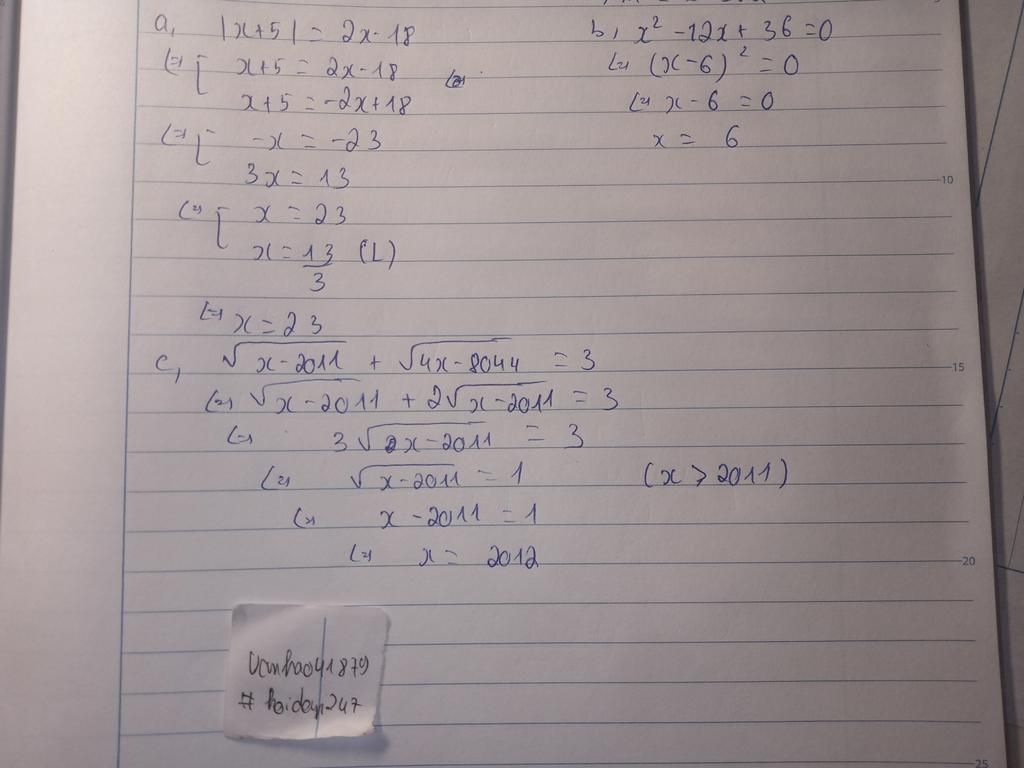 a, |x+5| = 2x-18
<=> [ x+5 = 2x-18
x+5 = -2x+18
<=> [ -x = -23
3x = 13
<=> [ x = 23
x = 13/3 (L)
<=> x = 23
b, x² - 12x + 36 = 0
<=> (x-6)² = 0
<=> x-6 = 0
x = 6
c, √(x-2011) + √(4x-8044) = 3
<=> √(x-2011) + 2√(x-2011) = 3
<=> 3√(x-2011) = 3
<=> √(x-2011) = 1 (x > 2011)
<=> x-2011 = 1
<=> x = 2012
10
15
20
25
# hoidap247